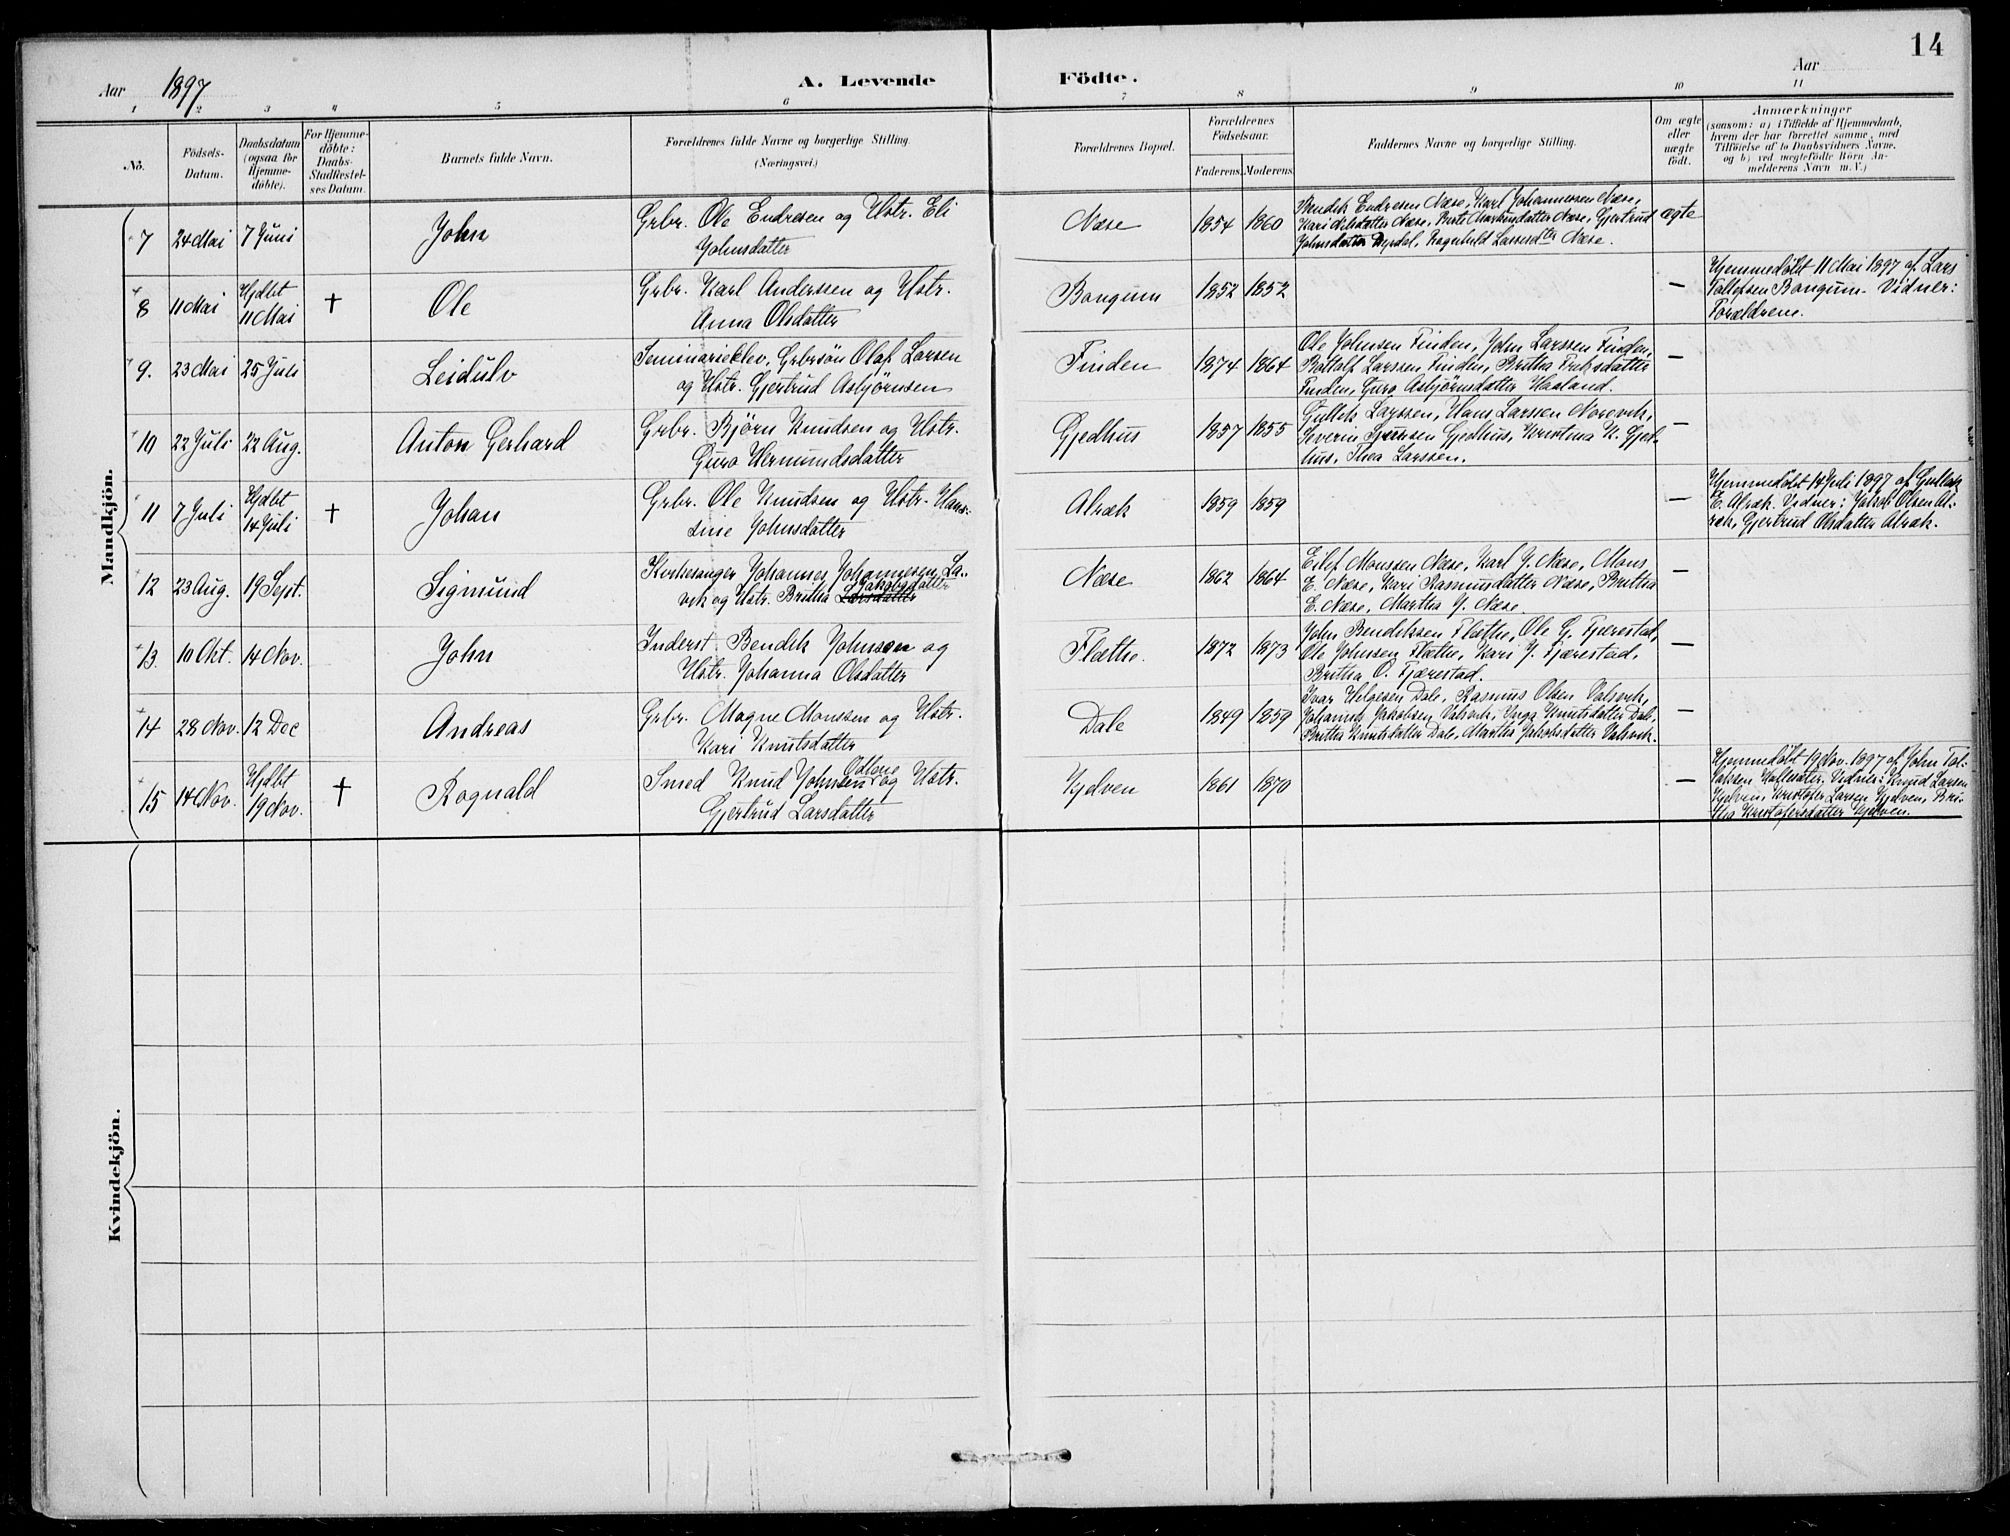 14
Aar 1897
A. Levende Födte.
Aar
1 2 3 4 5 6 7 8 9 10 11
No.
Födsels-Datum.
Daabsdatum (ogsaa for Hjemme-döbte).
For Hjemme-döbte: Daabs-Stadfæstel-ses Datum.
Barnets fulde Navn.
Forældrenes fulde Navne og borgerlige Stilling. (Næringsvei.)
Forældrenes Bopæl.
Forældrenes Födselsaar.
Faderens. Moderens.
Faddernes Navne og borgerlige Stilling.
Om ægte eller uægte födt.
Anmærkninger
(saasom: a) i Tilfælde af Hjemmedaab,
hvem der har forrettet samme, med
Tilföielse af to Daabsvidners Navne,
og b) ved uægtefödte Börn An-
melderens Navn m. V.)
Mandkjön.
7 24 Mai 7 Juni John
Grbr. Ole Endresen og Hstr. Eli
Johnsdatter
Næse 1854 1860
Bendik Endresen Næse, Karl Johannessen Næse,
Kari Nilsdatter Næse, Brite Markusdatter Næse, Gjertrud
Johnsdatter Dyrdal, Ragnhild Lassesdter Næse.
ægte
8 11 Mai Hjdbt 11 Mai † Ole
Grbr. Karl Anderssen og Hstr.
Anna Olsdatter
Bongum 1852 1852
—
Hjemmedøbt 11 Mai 1897 af Lars
Tollefsen Bongum. Vidner:
Forældrene.
9. 23 Mai 25 Juli Leidulv
Seminarieelev, Grbrsön Olaf Larsen
og Hstr. Gjertrud Asbjörnsen
Finden 1874 1864
Ole Johnsen Finden, John Larssen Finden,
Bottolf Larssen Finden, Britha Fritzdatter
Finden, Guro Asbjörnsdatter Haaland.
—
10 22 Juli 22 Aug. Anton Gerhard
Grbr. Bjørn Knudsen og Hstr.
Guro Vermundsdatter
Gjedhus 1857 1855
Gullek Larssen, Hans Larssen Norevik,
Severin Sjurssen Gjedhus, Kristina K. Gjed-
hus, Thea Larssen.
—
11 7 Juli Hjdbt 14 Juli † Johan
Grbr. Ole Knudsen og Hstr. Han-
sine Johnsdatter
Alræk 1859 1859
—
Hjemmedøbt 14 Juli 1897 af Gullek
E. Alræk. Vidner: Jakob Olsen Al-
ræk, Gjertrud Olsdatter Alræk.
12 23 Aug. 19 Sept. Sigmund
Kirkesanger Johannes Johannesen La-
vik og Hstr. Britha Larsdatter Jakobsdatter
Næse 1862 1864
Eilef Monssen Næse, Karl J. Næse, Mons
E. Næse, Kari Rasmusdatter Næse, Brittha
E. Næse, Martha J. Næse.
—
13 10 Okt. 14 Nov. John
Inderst Bendik Johnsen og
Hstr. Johanna Olsdatter
Flæthe. 1872 1873
John Bendikssen Flæthe, Ole G. Fjærestad,
Ole Johnsen Flæthe, Kari J. Fjærestad,
Britha O. Fjærestad.
—
14 28 Nov. 12 Dec Andreas
Grbr. Magne Monssen og Hstr.
Kari Knutsdatter
Dale 1849 1859
Ivar Helgesen Dale, Rasmus Olsen Valsvik,
Johannes Jakobsen Valsvik, Inga Knutsdatter Dale,
Britha Knutsdatter Dale, Martha Jakobsdatter Valsvik.
—
15 14 Nov. Hjdbt 19 Nov. † Rognald
Smed Knud Johnsen og Hstr.
Gjertrud Larsdatter
Kjelven 1861 1870
—
Hjemmedøbt 19 Nov. 1897 af John
Vidner: Knud Larsen
Kjelven, Kristofer Larsen Kjelven, Bri-
tha Kristofersdatter Kjelven.
Kvindekjön.